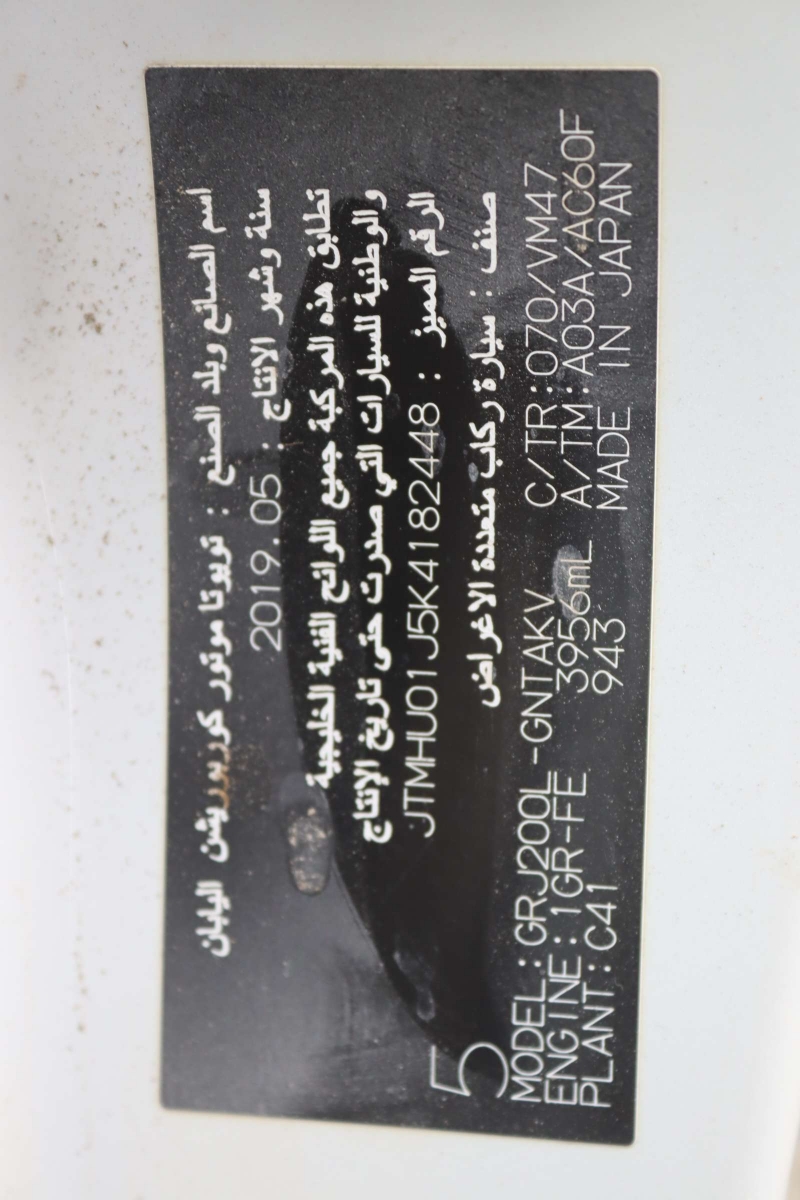 اسم الصانع وبلد الصنع : تويوتا موتور كوربوريشن اليابان
سنة وشهر الانتاج : 2019.05
تطابق هذه المركبة جميع اللوائح الفنية الخليجية
والوطنية للسيارات التي صدرت حتى تاريخ الإنتاج
الرقم المميز : JTMHU01J5K4182448
صنف : سيارة ركاب متعددة الاغراض
5
MODEL:GRJ200L-GNTAKV C/TR:070/VM47
ENGINE:1GR-FE 3956mL A/TM:A03A/AC60F
PLANT:C41 943 MADE IN JAPAN